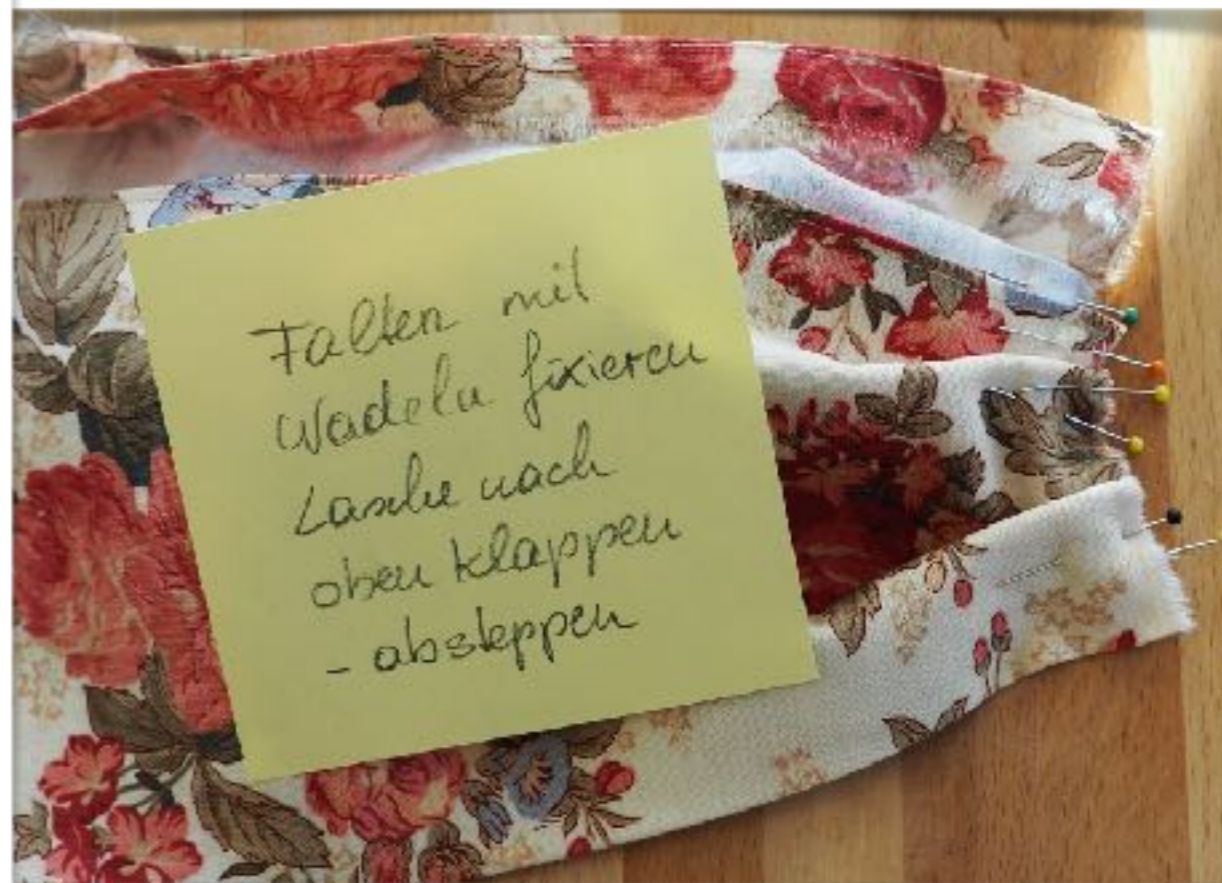 Falten mit
Nadeln fixieren
Lasche nach
oben klappen
- absteppen